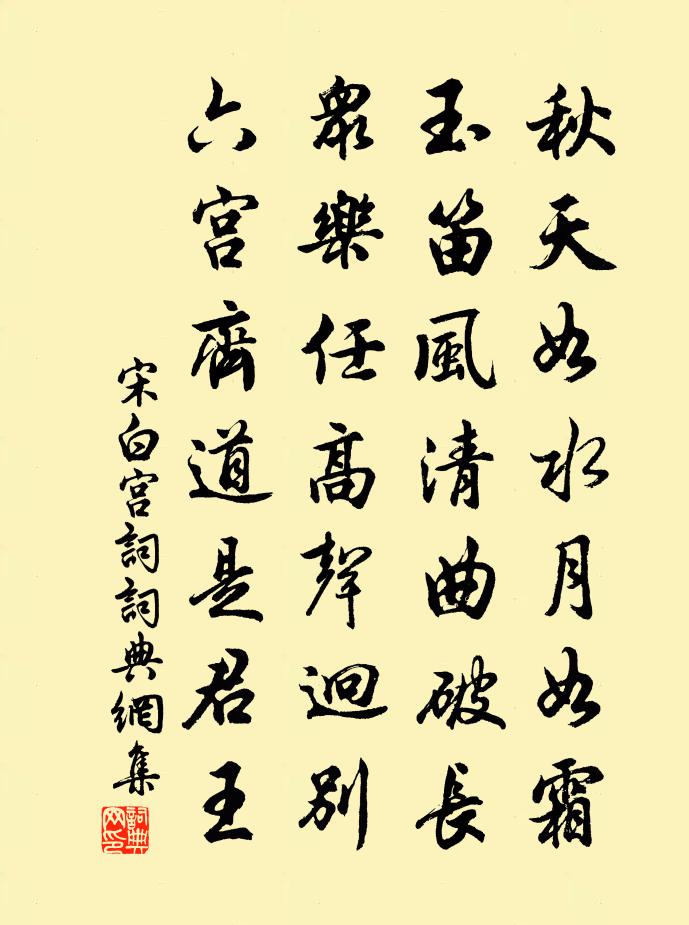 秋天如水月如霜
玉笛風清曲破長
眾樂任高聲迥別
六宮齊道是君王
宋白宮詞詞典網集
詞典網印